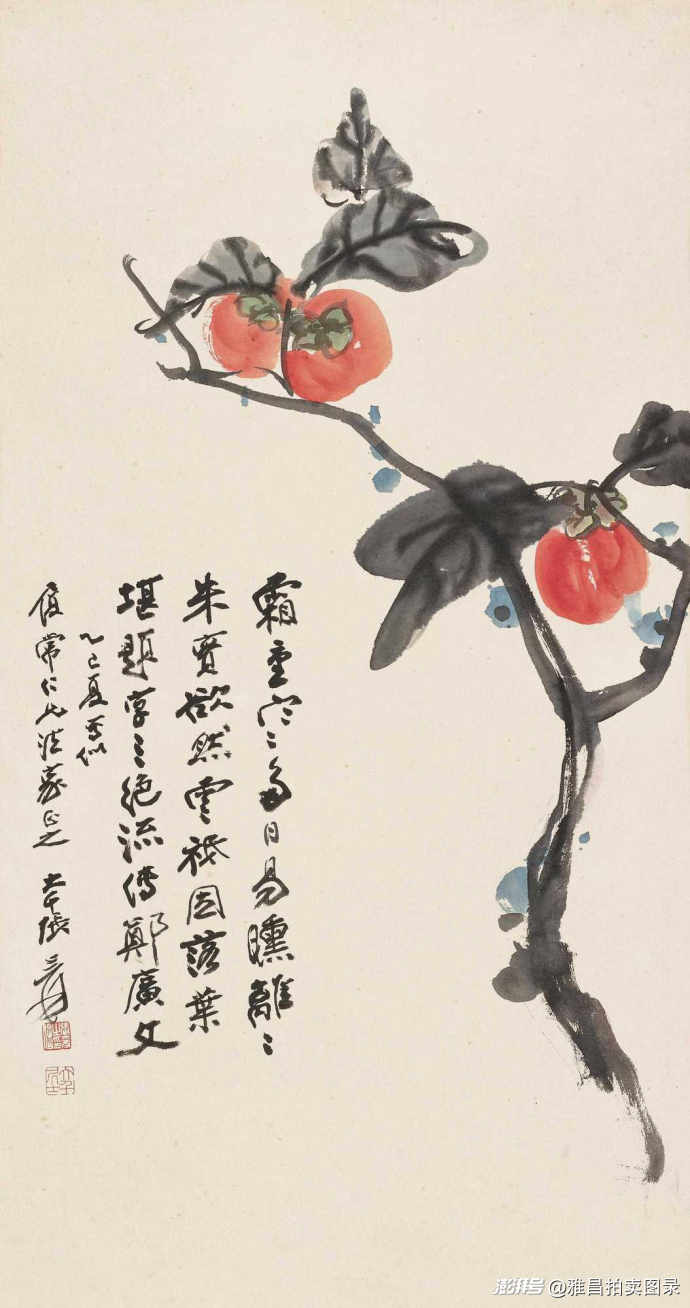 霜重寒多日易曛離〻
朱實欲然雲祇因落葉
堪題字三絕流傳鄭廣文
乙巳夏寫似
復常仁兄法家正之 大千張爰
澎湃号 @雅昌拍卖图录